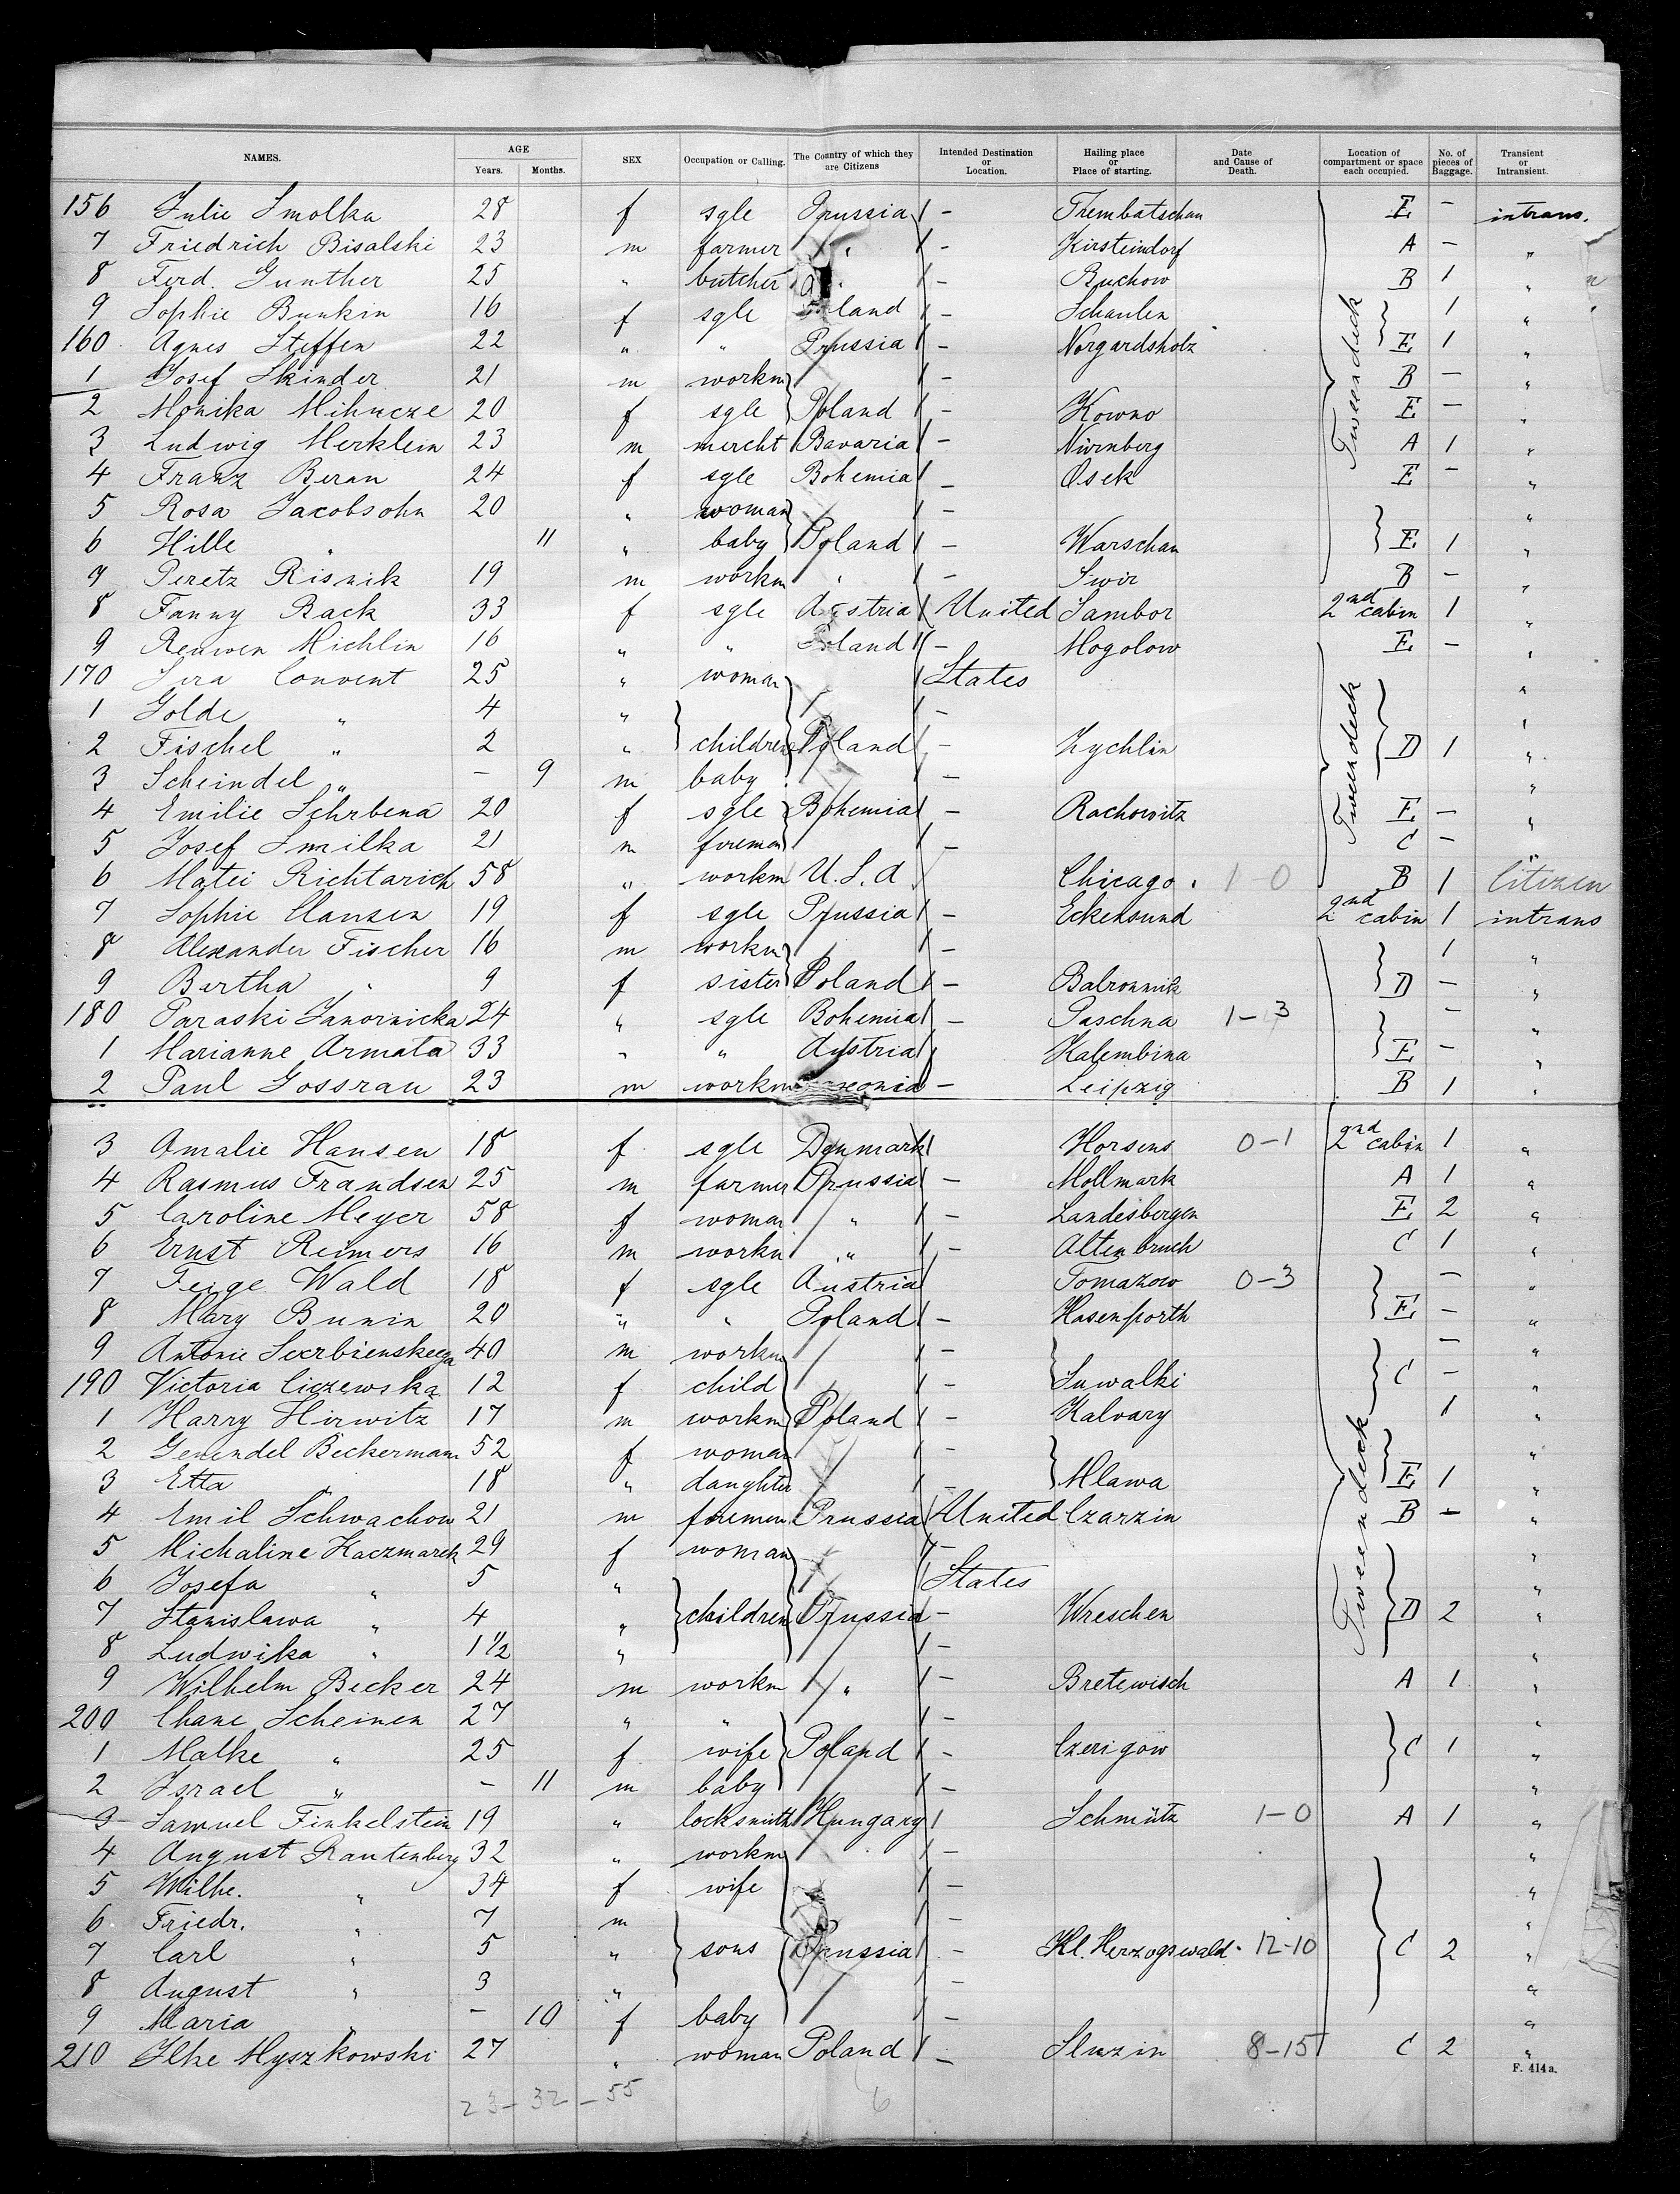 NAMES. AGE Years. Months. SEX Occupation or Calling. The Country of which they are Citizens Intended Destination or Location. Hailing place or Place of starting. Date and Cause of Death. Location of compartment or space each occupied. No. of pieces of Baggage. Transient or Intransient.
156 Julie Smolka 28 f sgle Prussia - Trembatschau E - intrans.
7 Friedrich Bisalski 23 m farmer " - Kirsteindorf A - "
8 Ferd. Gunther 25 " butcher " - Buchow B 1 "
9 Sophie Bunkin 16 f sgle Poland - Schaulen 1 "
160 Agnes Steffen 22 " " Prussia - Norgardsholz E 1 "
1 Josef Skinder 21 m workm - B - "
2 Monika Mihucze 20 f sgle Poland - Kowno E - "
3 Ludwig Merklein 23 m mercht Bavaria - Nürnberg A 1 "
4 Franz Beran 24 f sgle Bohemia - Osek E - "
5 Rosa Jacobsohn 20 " woman - "
6 Hille " 11 " baby Poland - Warschau E 1 "
7 Peretz Risnik 19 m workm " - Swir B - "
8 Fanny Back 33 f sgle Austria United Sambor 2nd cabin 1 "
9 Reuwen Michlin 16 " " Poland - Mogolow E - "
170 Sera Convent 25 " woman States "
1 Golde " 4 " - "
2 Fischel " 2 " children Poland - Zychlin D 1 "
3 Scheindel " - 9 m baby - "
4 Emilie Sehrbena 20 f sgle Bohemia - Rachowitz E - "
5 Josef Smilka 21 m foreman - C - "
6 Matei Richtarich 58 " workm U.S.A Chicago 1-0 B 1 Citizen
7 Sophie Clausen 19 f sgle Prussia - Eckensund 2nd cabin 1 intrans
8 Alexander Fischer 16 m workm - 1 "
9 Bertha " 9 f sister Poland - Balronnik D - "
180 Paraski Janornicka 24 " sgle Bohemia - Paschna 1-3 - "
1 Marianne Armata 33 " " Austria Kalembina E - "
2 Paul Gossrau 23 m workm Saxonia - Leipzig B 1 "
3 Amalie Hansen 18 f sgle Denmark Horsens 0-1 2nd cabin 1 "
4 Rasmus Frandsen 25 m farmer Prussia - Mollmark A 1 "
5 Caroline Meyer 58 f woman " - Landesbergen E 2 "
6 Ernst Reimers 16 m workm " - Altenbruch C 1 "
7 Feige Wald 18 f sgle Austria Tomazow 0-3 - "
8 Mary Bunin 20 " " Poland - Hasenporth E - "
9 Antonie 40 m workm - - "
190 Victoria Ciczewska 12 f child - Suwalki C - "
1 Harry Hirwitz 17 m workm Poland - Kalvary 1 "
2 Genendel Beckermann 52 f woman - "
3 Etta " 18 " daughter - Mlawa E 1 "
4 Emil Schwachow 21 m foreman Prussia United Czarzin B - "
5 Michaline Kaczmarek 29 f woman - "
6 Josefa " 5 " States "
7 Stanislawa " 4 " children Prussia - Wreschen D 2 "
8 Ludwika " 1 1/2 " - "
9 Wilhelm Becker 24 m workm " - Bretewisch A 1 "
200 Chane Scheinen 27 " " - "
1 Malke " 25 f wife Poland - Czerigow C 1 "
2 Israel " - 11 m baby - "
3 Samuel Finkelstein 19 " locksmith Hungary Schmütz 1-0 A 1 "
4 August Rautenberg 32 " workm - "
5 Wilhe. " 34 f wife - "
6 Friedr. " 7 m - "
7 Carl " 5 " sons Prussia - Kl. Herzogswald 12-10 C 2 "
8 August " 3 " - "
9 Maria " - 10 f baby - "
210 Ilke Myszkowski 27 " woman Poland - Sluzin 8-15 C 2 "
Tweendeck
Tweendeck
Tweendeck
F. 414a.
23-32-55 6